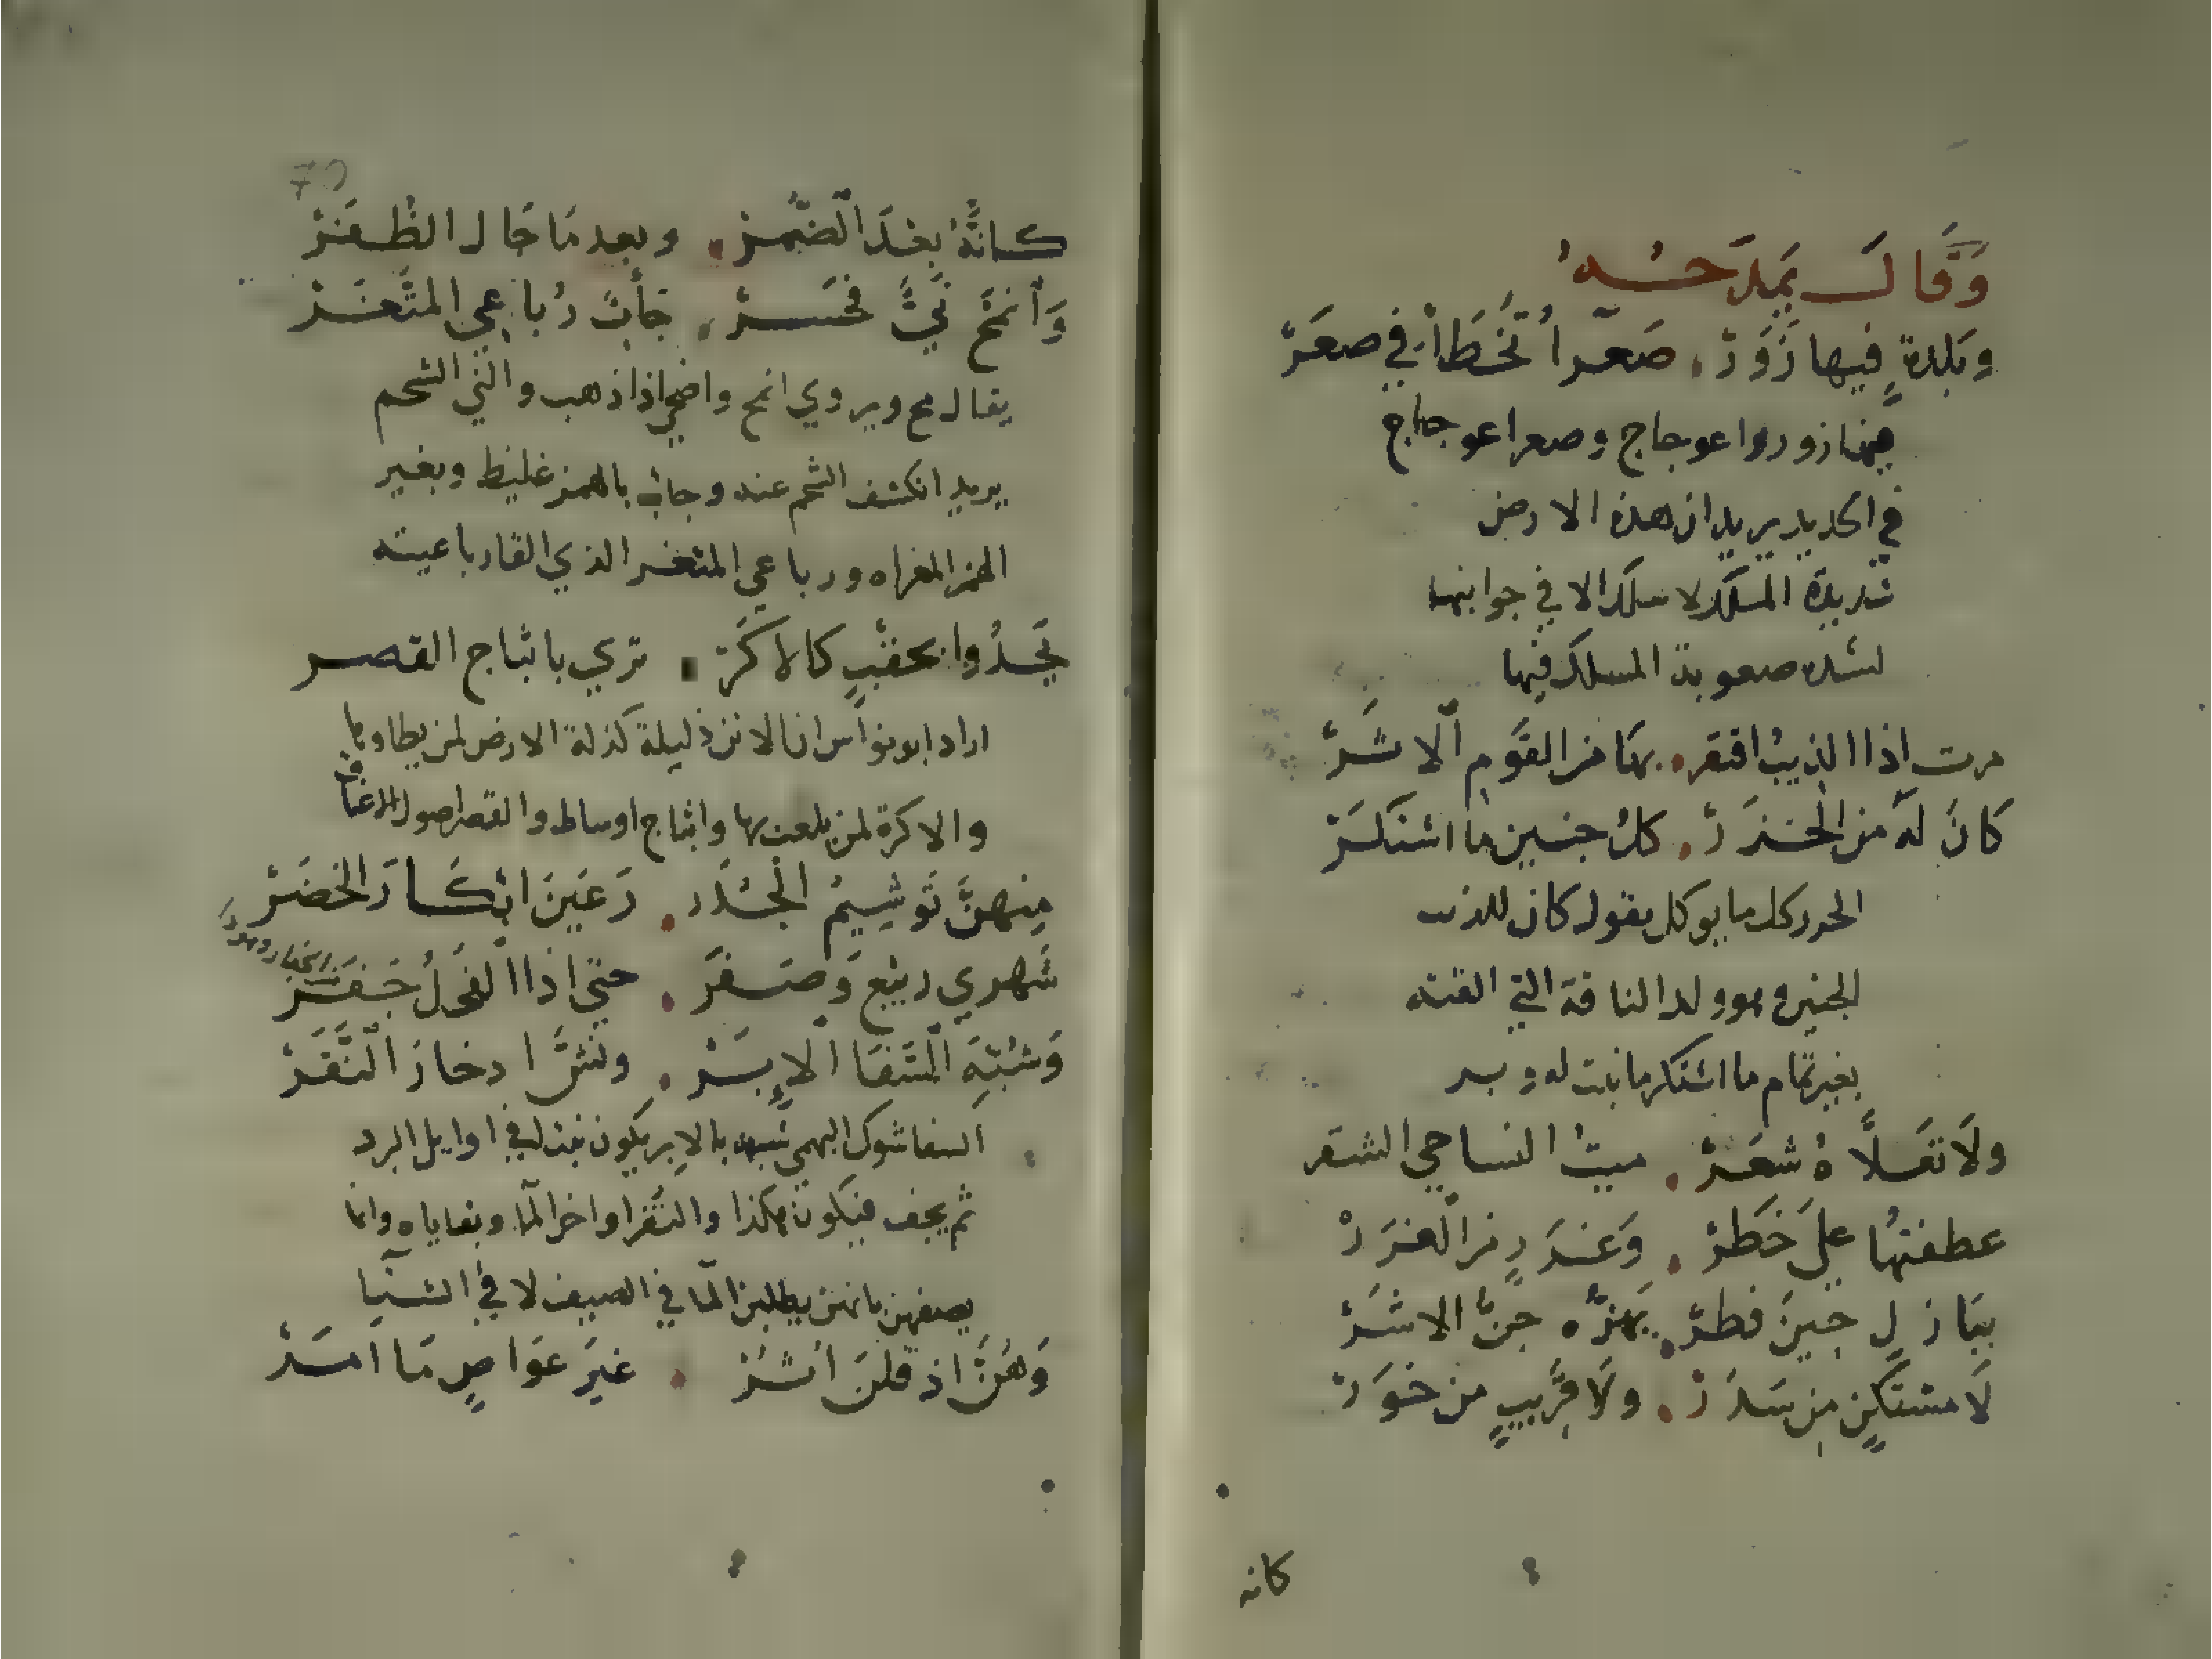 وَقَالَ يَمدَحُهُ
وَبَلدةٍ فيها زَوَرْ . صَعْراُ تُخْطَاْ في صعَرْ
فيها زوروا عوجاج وصعرا عوجاج
في الحديد يريد ان هذه الارض
شديدة المسلك لا سلك الا في جوانبها
لشده صعوبة المسلك فيها
مرت اذا الذيبُ اقتفر . بها من القَومِ الاشَرْ
كانَ لهُ من الجَزَرْ . كلُ جنين ما اشتكَرْ
الجزر كل ما يوكل يقول كان للذيب
الجنين وهو ولد الناقة التي القته
بغير تمام ما اشتكر ما نبت له وبر
ولَا تعَلَّاهُ شعَرْ . ميتُ النسا حي الشفر
عطفتُها علي خَطَرْ . وَغَرَرٍ من الغَرَرْ
ببَازلٍ حِينَ فطَرْ . يَهزُّه جِنُّ الاشَرْ
لَا مشتكٍ من سَدَرْ . ولَا قَريبٍ من خوَرْ
كانه
كانَّهُ بعدَ الضُّمرْ . وبعد مَا جَال الظُفَرْ
وَانمَحَّ نَيٌّ فحسَرْ . جَأبٌ رُباعي المثَّغَرْ
يقال مح ويروي انمح واضمحل اذا ذهب والني الشحم
يريد انكشف الشحم عنه وجاب بالهمز غليظ وبغير
الهمز المغراه ورباعي المثغر الذي القا رباعيته
يَحدُوا بحقبٍ كالاكَرْ . تري باثباج القصر
اراد ابو نواس ان الاتن ذليلة كذلة الارض لمن يطاوها
والاكرة لمن يلعب بها واثباج اوساط والقصر اصول الاعناق
مِنهنَّ تَوشِيمُ الجُدَر . رَعَينَ ابكَارَ الخضَرْ
شَهري ربيع وَصفَرَ . حتي اذا الفَحلُ جَفَرْ
وَشبّهَ السَّفَا الاِبَرْ . ونَشَّ ادخارَ النُّقَرْ
السفا شوك البهمي شبهه بالابر يكون نبته في اوايل البرد
ثم يجف فيكون هكذا والنُّقر اواخر الما وبقاياه وانما
يصفهن بانهن يطلبن الما في الصيف لا في الشتا
وَهُنَّ اذ قلنَ اشُرْ . غيرَ عَوَاصٍ مَا امَرْ